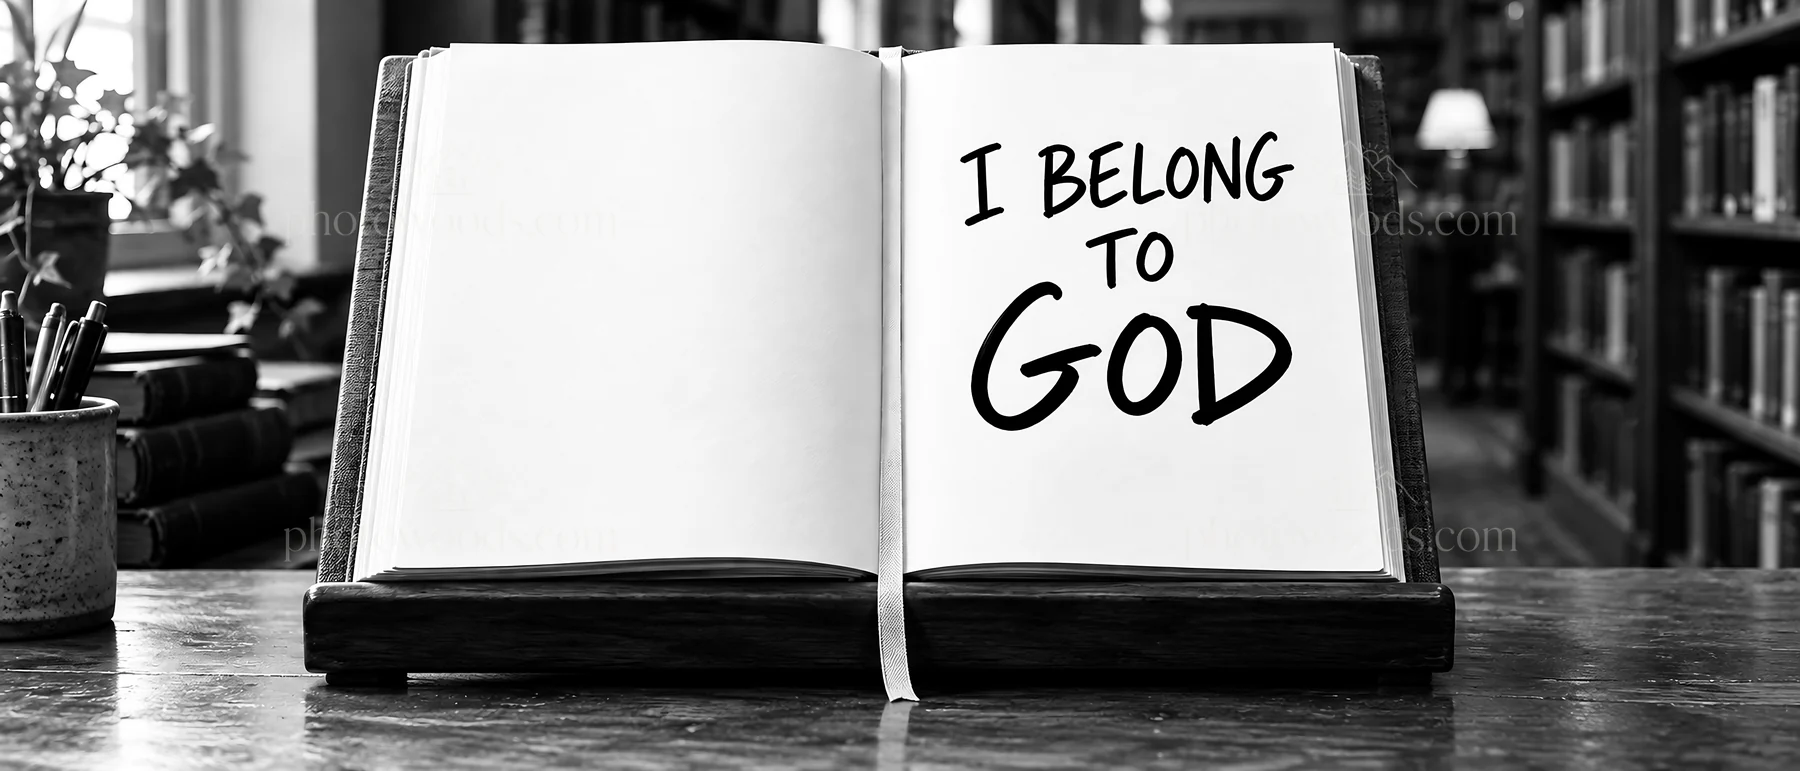 I BELONG
TO
GOD
photowoods.com
photowoods.com
photowoods.com
photowoods.com